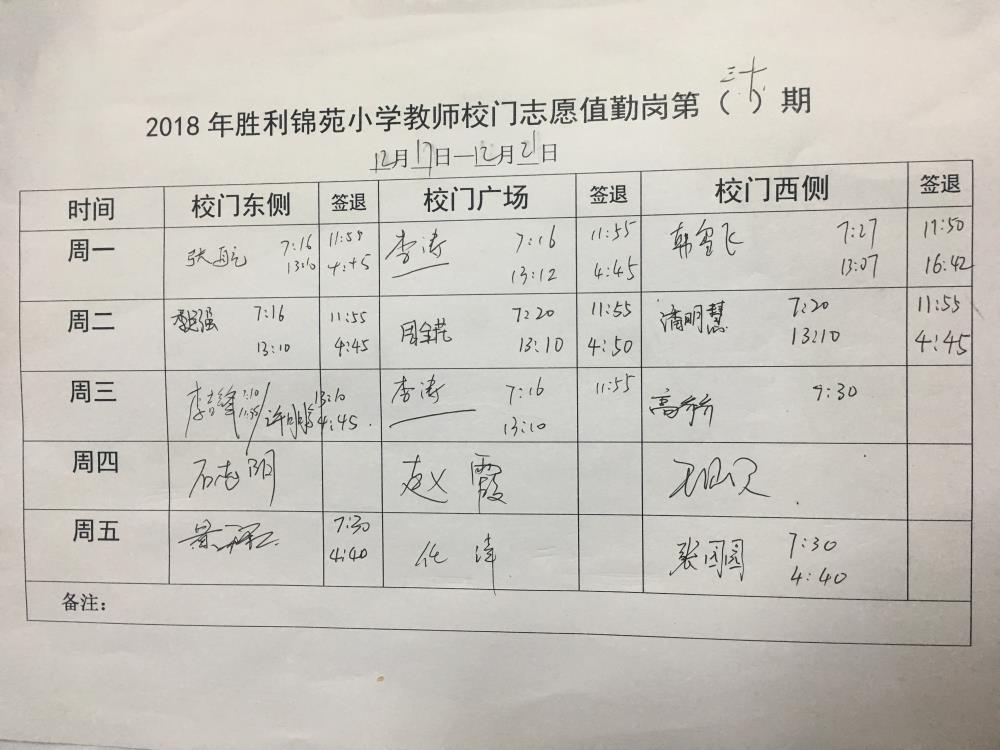 2018年胜利锦苑小学教师校门志愿值勤岗第（三十）期
12月17日—12月21日
时间 校门东侧 签退 校门广场 签退 校门西侧 签退
周一 张航 7:16 11:59 李涛 7:16 11:55 韩雪飞 7:27 11:50
13:10 4:45 13:12 4:45 13:07 16:42
周二 强 7:16 11:55 7:20 11:55 明慧 7:20 11:55
13:10 4:45 13:10 4:50 13:10 4:45
周三 李 锋 7:10 13:10 李涛 7:16 11:55 高 9:30
11:55 许明 4:45 13:10
周四 石志阳 赵霞
周五 7:30 任涛 张团圆 7:30
4:40 4:40
备注：